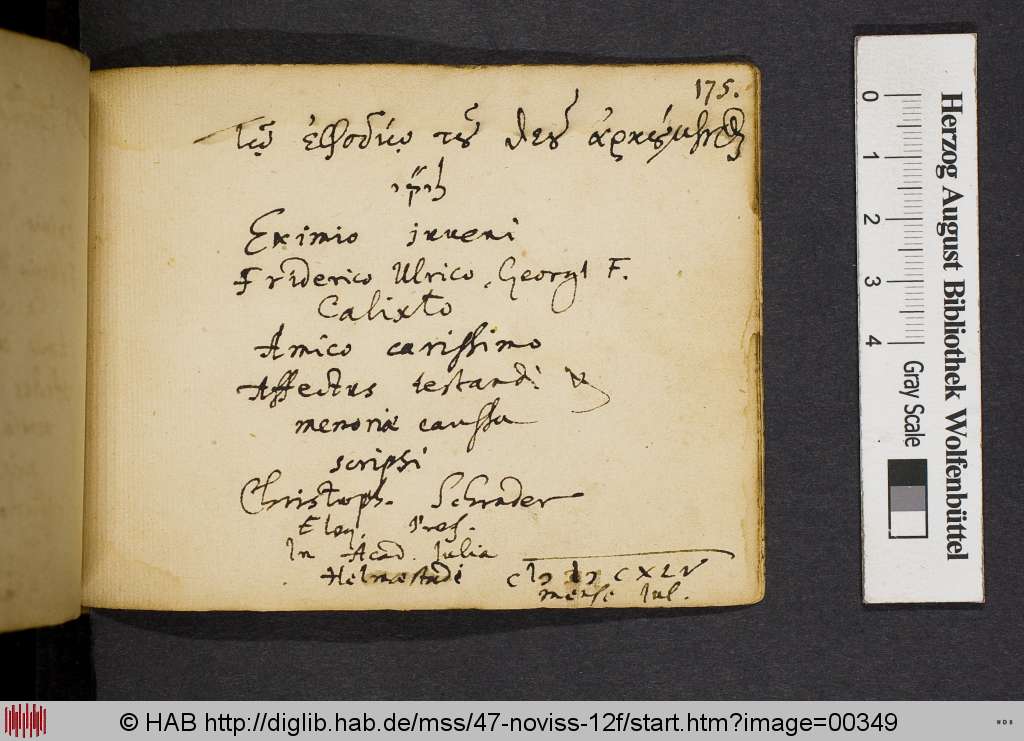 175.
τῷ ἐφοδίῳ τοῦ θεοῦ ἀρκούμεθα
Eximio juveni
Friderico Ulrico, Georgl F.
Calixto
Amico carissimo
Affectus testandi &
memoriæ caussa
scripsi
Christoph. Schrader
Eloq. Prof.
In Acad. Julia
Helmæstadi cIɔ Iɔ CXLV
mense Jul.
0
1
2
3
4
Herzog August Bibliothek Wolfenbüttel
Gray Scale
© HAB http://diglib.hab.de/mss/47-noviss-12f/start.htm?image=00349
HAB